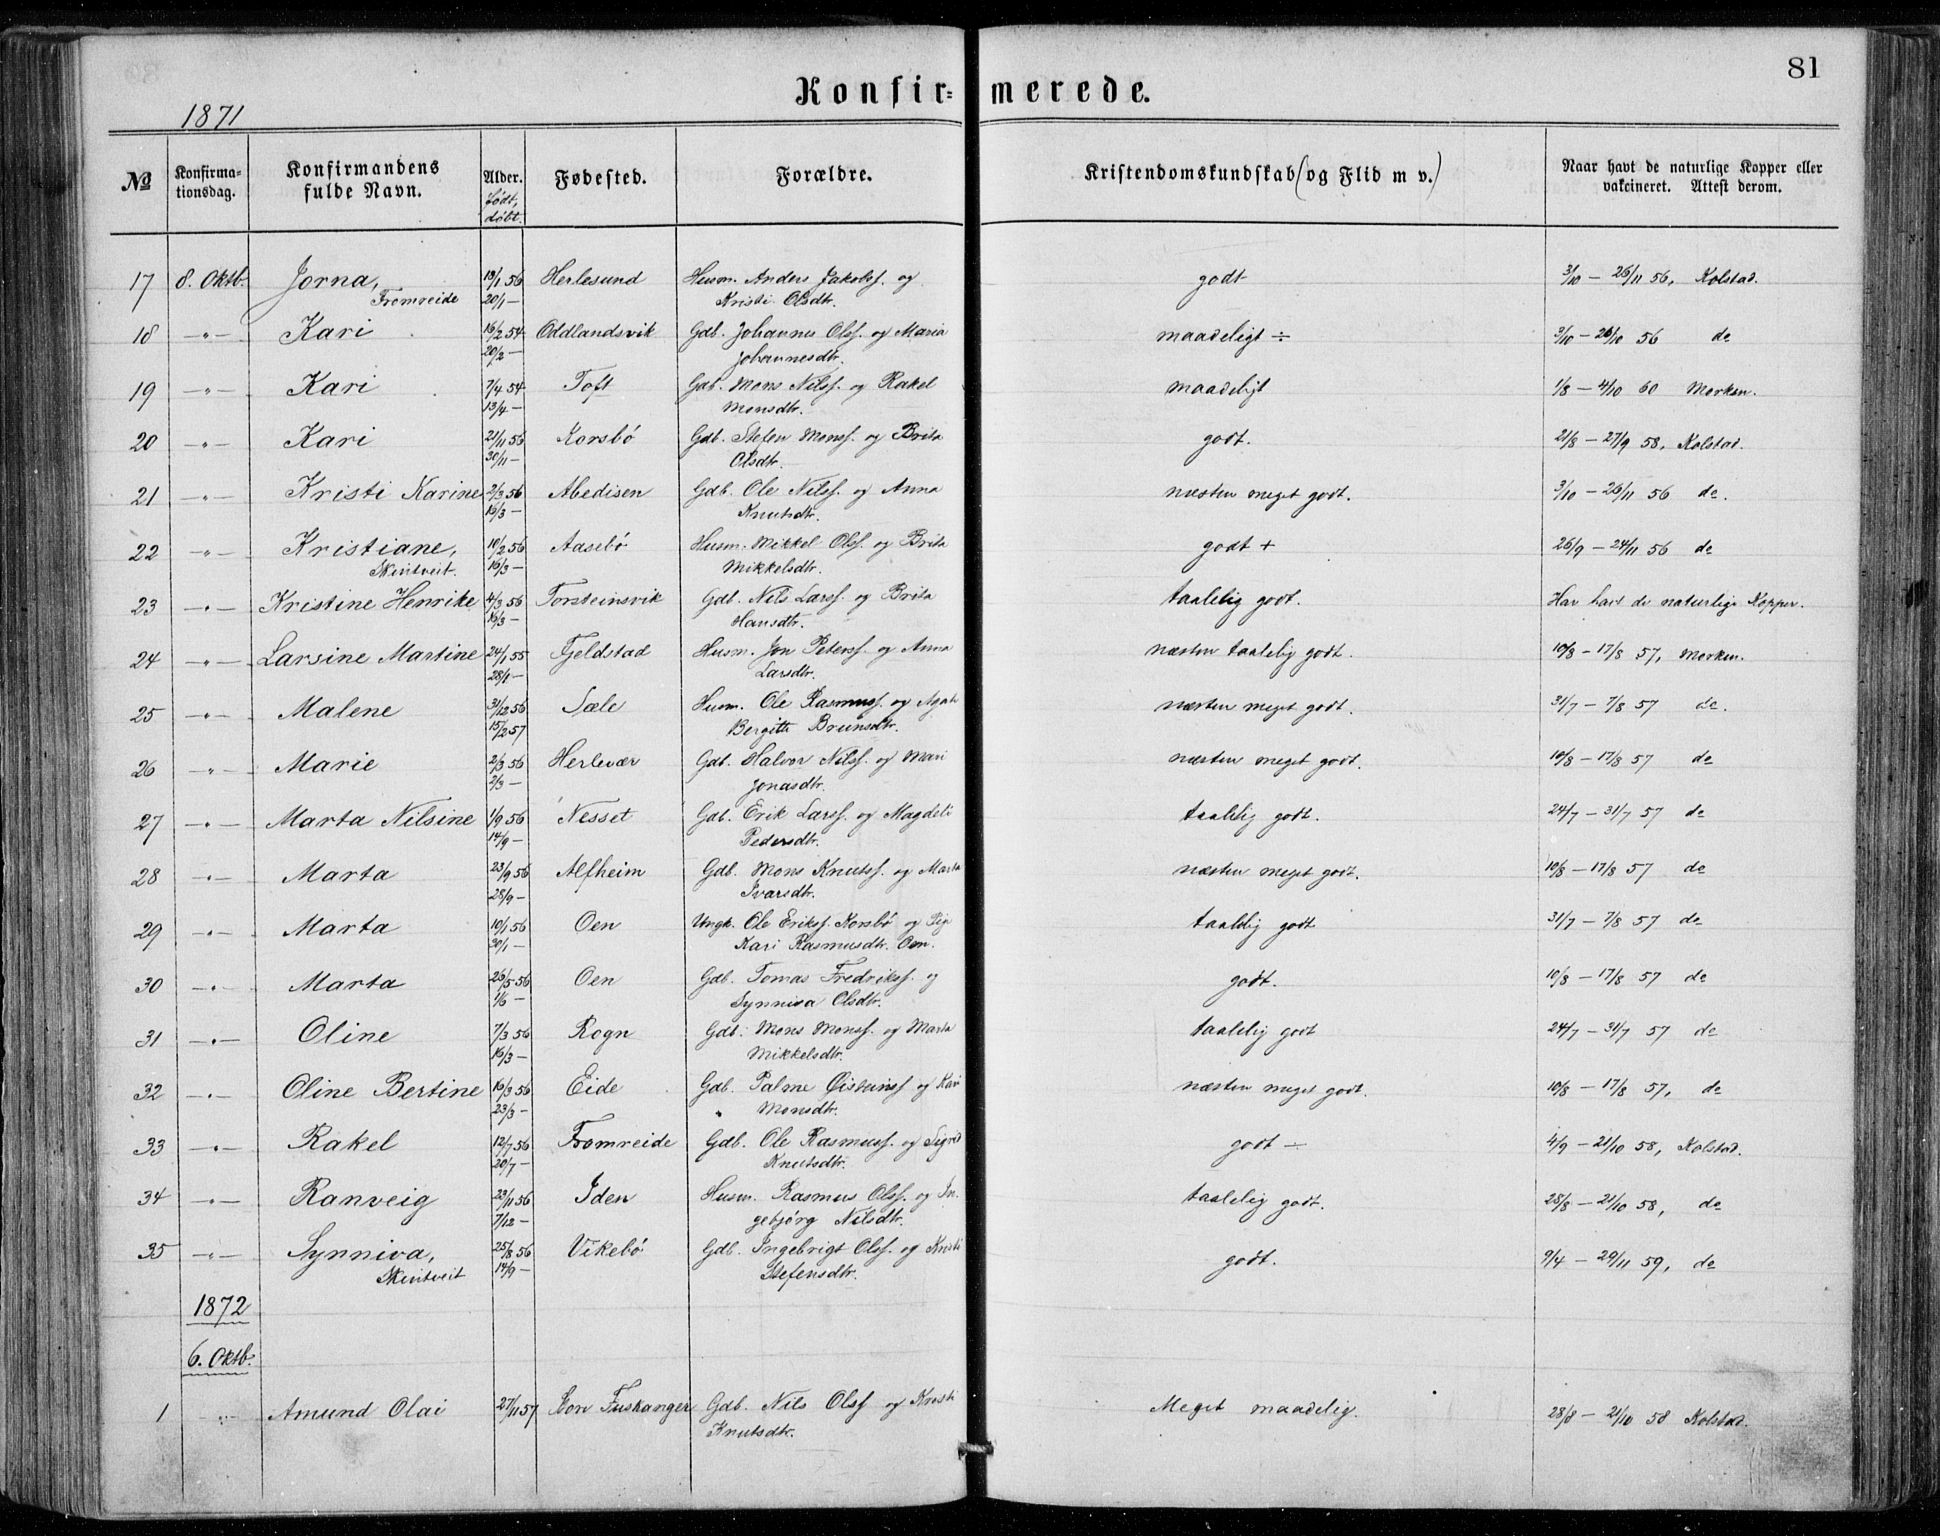 81
Konfirmerede.
1871
№ Konfirma-tionsdag. Konfirmandens fulde Navn. Alder. Født, døbt. Fødested. Forældre. Kristendomskundskab (og Flid m v.) Naar havt de naturlige Kopper eller vakcineret. Attest derom.
17 8. Oktb. Jorna, 13/1 56 Herlesund Husm. Anders Jakobsf. og godt 3/10 – 26/11 56, Kolstad.
Fromreide 20/1 – Kristi Olsdtr.
18 –„– Kari 16/2 54 Oddlandsvik Gdb. Johannes Olsf. og Maria maadeligt ÷ 3/10 – 26/10 56 do
20/2 – Johannesdtr.
19 –„– Kari 7/4 54 Toft Gdb. Mons Nilsf. og Rakel maadeligt 1/8 – 4/10 60 Morken.
13/4 – Monsdtr.
20 –„– Kari 21/11 56 Korsbø Gdb. Stefen Monsf. og Brita godt. 21/8 – 27/9 58, Kolstad.
30/11 – Olsdtr.
21 –„– Kristi Karine 2/3 56 Abedisen Gdb. Ole Nilsf. og Anna næsten meget godt. 3/10 – 26/11 56 do.
16/3 – Knutsdtr.
22 –„– Kristiane, 10/2 56 Aasebø Husm. Mikkel Olsf. og Brita godt + 26/9 – 24/11 56 do
Skintveit. 16/3 – Mikkelsdtr.
23 –„– Kristine Henrike 4/3 56 Torsteinsvik Gdb. Nils Larsf. og Brita taalelig godt. Har havt de naturlige Kopper.
16/3 – Hansdtr.
24 –„– Larsine Martine 24/1 55 Fjeldstad Husm. Jon Petersf. og Anna næsten taalelig godt. 10/8 – 17/8 57, Morken.
28/1 – Larsdtr.
25 –„– Malene 31/12 56 Sæle Husm. Ole Rasmusf. og Agate næsten meget godt. 31/7 – 7/8 57 do.
15/2 57 Bergitte Brunsdtr.
26 –„– Marie 2/3 56 Herlevær Gdb. Halvor Nilsf. og Mari næsten meget godt. 10/8 – 17/8 57 do
2/3 – Jonasdtr.
27 –„– Marta Nilsine 1/9 56 Nesset Gdb. Erik Larsf. og Magdeli taalelig godt. 24/7 – 31/7 57 do
14/9 – Pedersdtr.
28 –„– Marta 23/9 56 Alfheim Gdb. Mons Knutsf. og Marta næsten meget godt. 10/8 – 17/8 57 do
28/9 – Ivarsdtr.
29 –„– Marta 10/1 56 Oen Ungk. Ole Eriksf. Korsbø og Pige taalelig godt 31/7 – 7/8 57 do
30/1 – Kari Rasmusdtr. Oen.
30 –„– Marta 26/5 56 Oen Gdb. Tomas Fredriksf. og godt. 10/8 – 17/8 57 do
1/6 – Synniva Olsdtr.
31 –„– Oline 7/3 56 Rogn Gdb. Mons Monsf. og Marta taalelig godt 24/7 – 31/7 57 do
16/3 – Mikkelsdtr.
32 –„– Oline Bertine 16/3 56 Eide Gdb. Palme Øistensf. og Kari næsten meget godt. 10/8 – 17/8 57, do
23/3 – „ Monsdtr.
33 –„– Rakel 12/7 56 Fromreide Gdb. Ole Rasmusf. og Sigrid godt ÷ 4/9 – 21/10 58, Kolstad.
20/7 – Knutsdtr.
34 –„– Ranveig 23/11 56 Iden Husm. Rasmus Olsf. og In- taalelig godt. 28/8 – 21/10 58, do
7/12 – gebjørg Nilsdtr.
35 –„– Synniva, 25/8 56 Vikebø Gdb. Ingebrigt Olsf. og Kristi godt. 9/4 – 29/11 59, do
Skintveit 14/9 – Stefensdtr.
1872
6. Oktb.
1 –„– Amund Olai 27/11 57 Fuskanger Gdb. Nils Olsf og Kristi Meget maadelig. 28/8 – 21/10 58 Kolstad.
Knutsdtr.